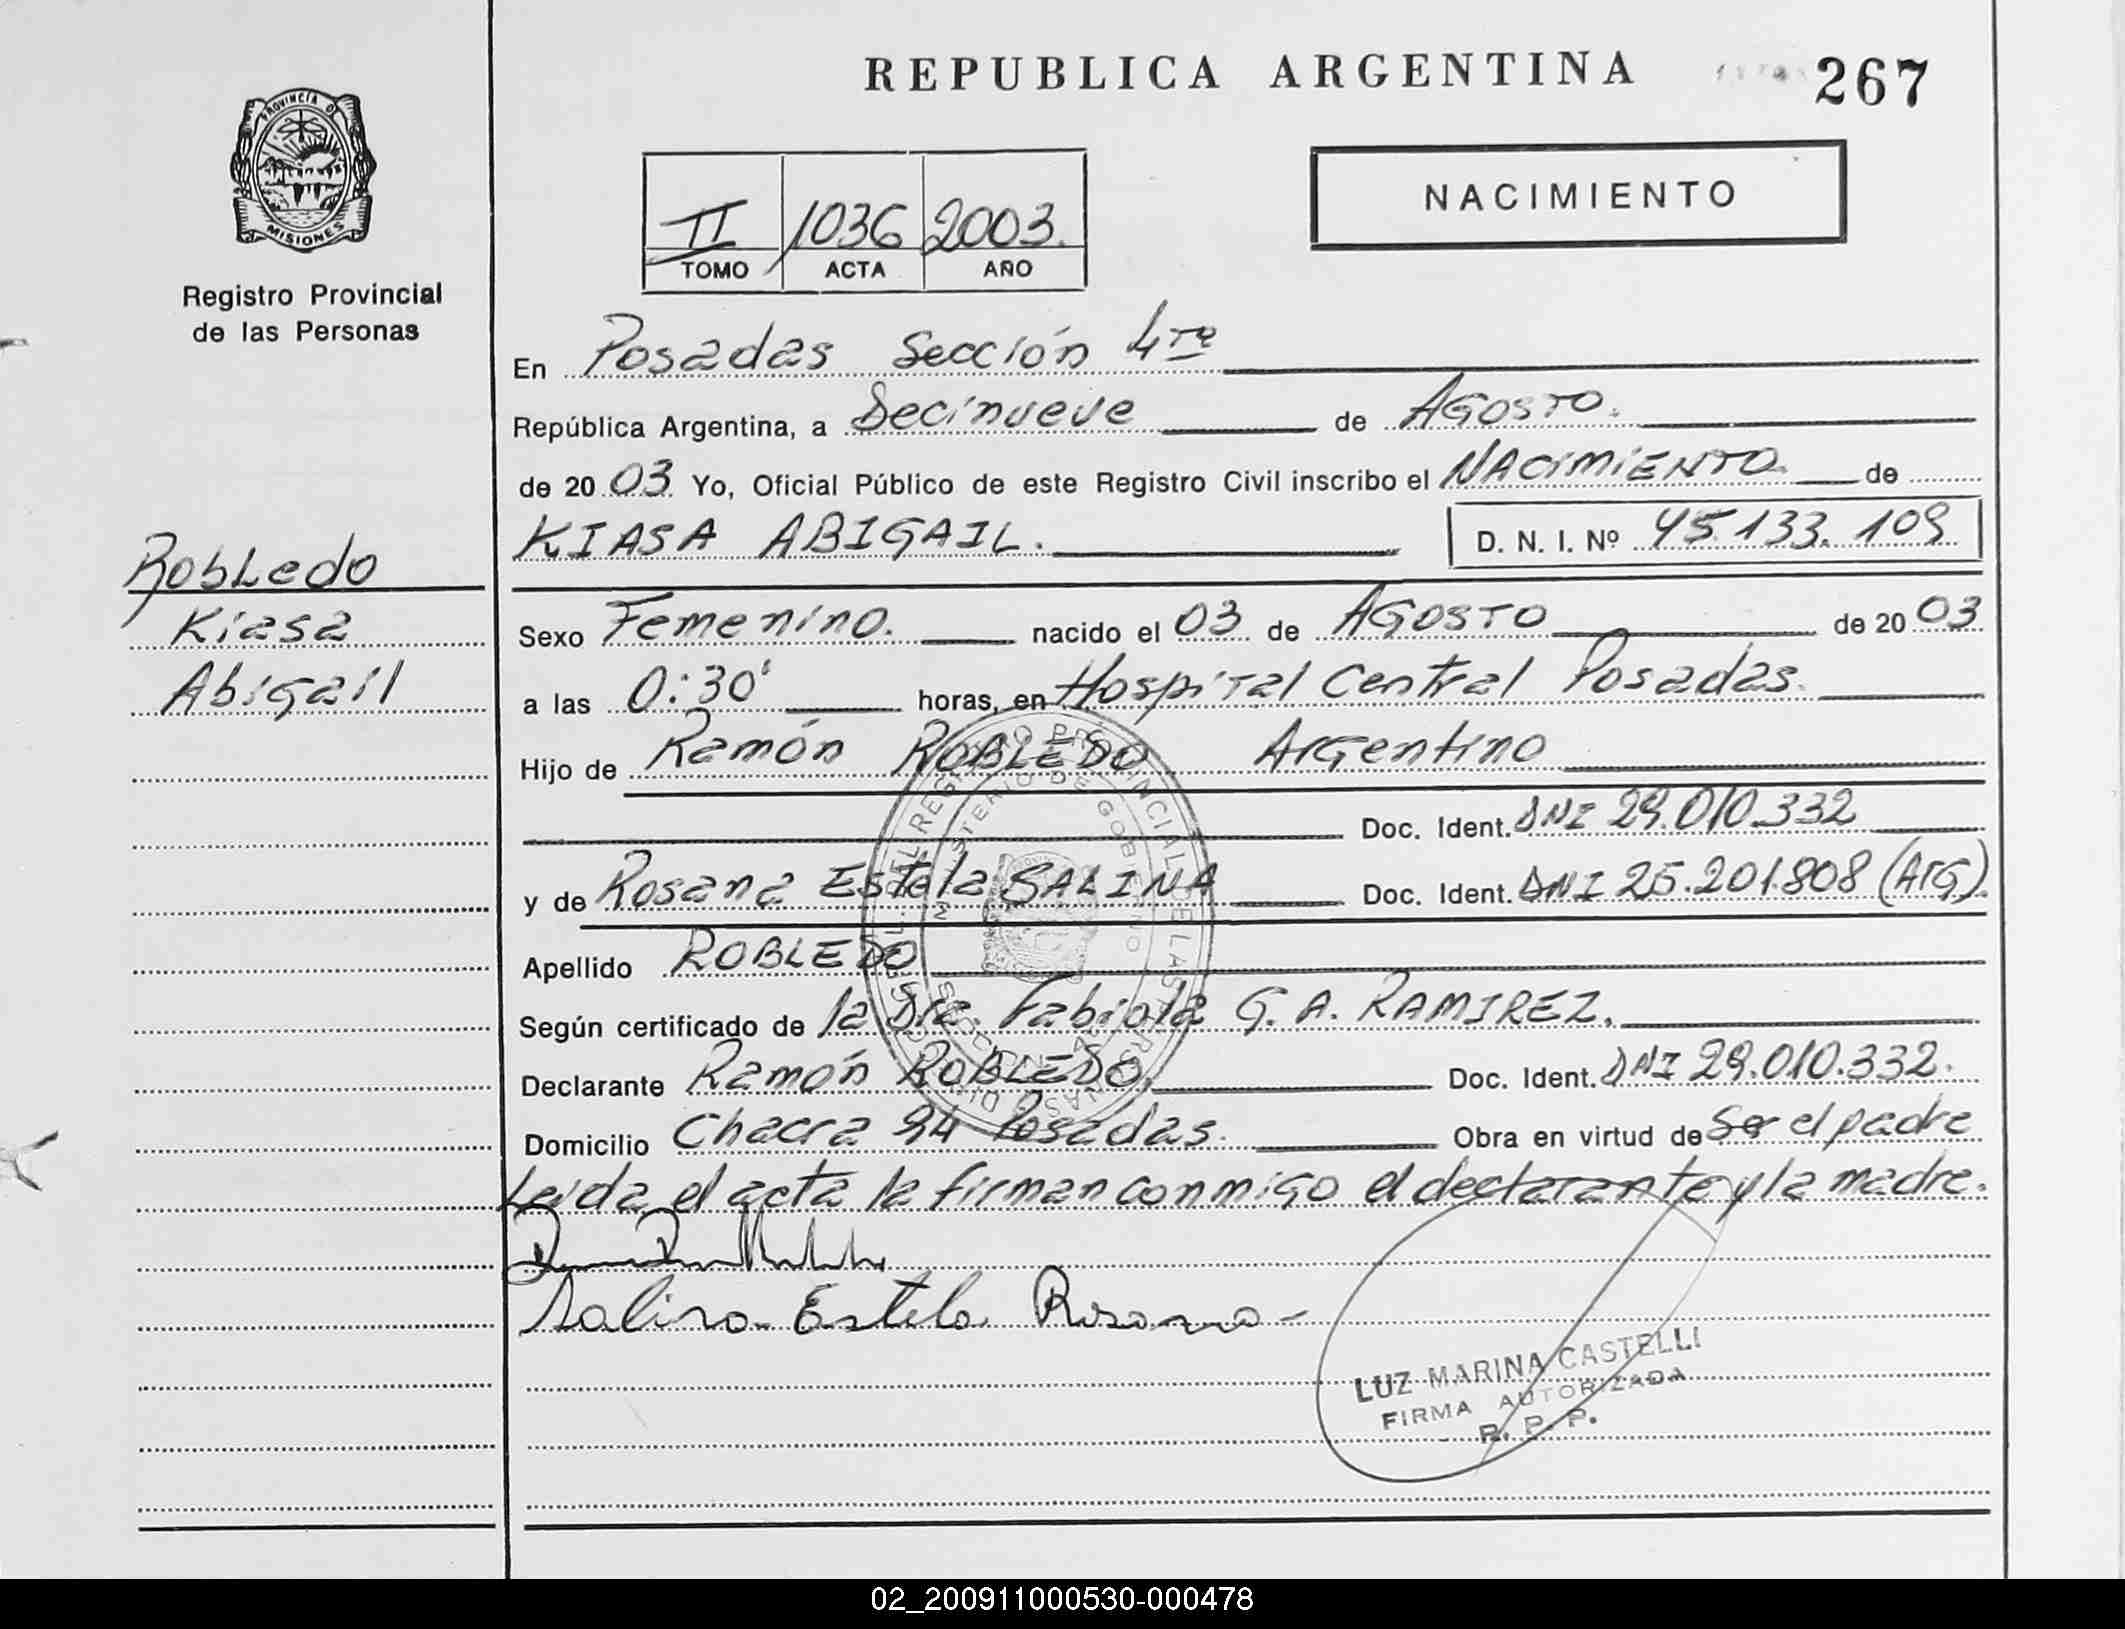 REPUBLICA ARGENTINA
267
PROVINCIA DE
MISIONES
Registro Provincial
de las Personas
II 1036 2003.
TOMO ACTA AÑO
NACIMIENTO
En Posadas Sección 4ta
República Argentina, a Decinueve de Agosto.
de 2003 Yo, Oficial Público de este Registro Civil inscribo el NACIMIENTO de
KIASA ABIGAIL. D. N. I. Nº 45.133.109
Robledo
Kiasa
Abigail
Sexo Femenino. nacido el 03 de AGOSTO de 2003
a las 0:30' horas, en Hospital Central Posadas.
Hijo de Ramón ROBLEDO Argentino
Doc. Ident. DNI 29.010.332
y de Rosana Estela SALINA Doc. Ident. DNI 25.201.808 (Arg).
Apellido ROBLEDO
Según certificado de la Dra. Fabiola G. A. RAMIREZ.
Declarante Ramón ROBLEDO. Doc. Ident. DNI 29.010.332.
Domicilio Chacra 94 Posadas. Obra en virtud de Ser el padre
Leida el acta la firman conmigo el declarante y la madre.
Salina Estela Rosana
LUZ MARINA CASTELLI
FIRMA AUTORIZADA
R. P. P.
02_200911000530-000478